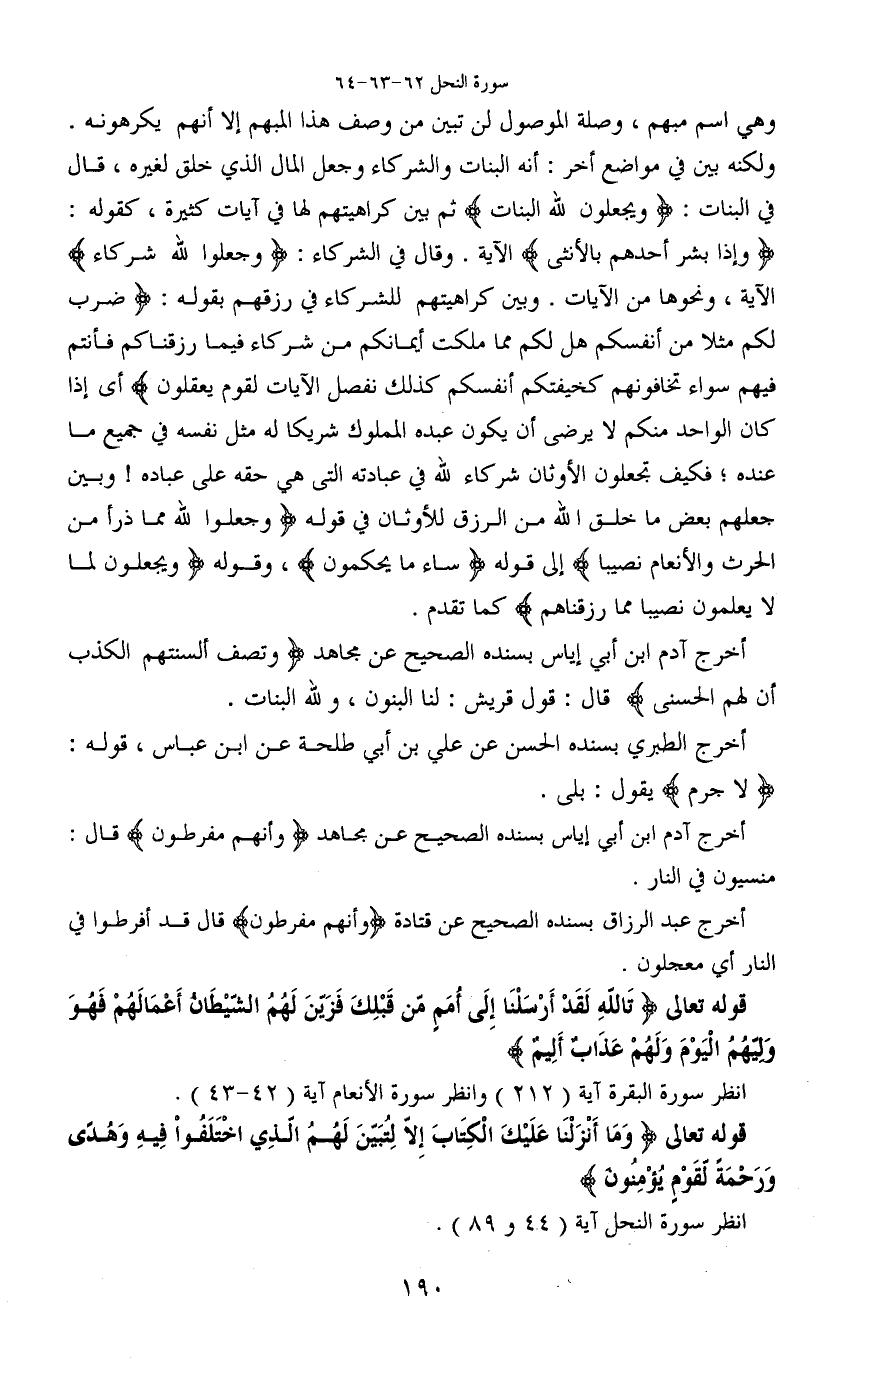 سورة النحل ٦٢-٦٣-٦٤
وهي اسم مبهم ، وصلة الموصول لن تبين من وصف هذا المبهم إلا أنهم يكرهونه .
ولكنه بين في مواضع أخر : أنه البنات والشركاء وجعل المال الذي خلق لغيره ، قال
في البنات : ﴿ ويجعلون لله البنات ﴾ ثم بين كراهيتهم لها في آيات كثيرة ، كقوله :
﴿ وإذا بشر أحدهم بالأنثى ﴾ الآية . وقال في الشركاء : ﴿ وجعلوا لله شركاء ﴾
الآية ، ونحوها من الآيات . وبين كراهيتهم للشركاء في رزقهم بقوله : ﴿ ضرب
لكم مثلا من أنفسكم هل لكم مما ملكت أيمانكم من شركاء فيما رزقناكم فأنتم
فيهم سواء تخافونهم كخيفتكم أنفسكم كذلك نفصل الآيات لقوم يعقلون ﴾ أى إذا
كان الواحد منكم لا يرضى أن يكون عبده المملوك شريكا له مثل نفسه في جميع ما
عنده ؛ فكيف تجعلون الأوثان شركاء لله في عبادته التى هي حقه على عباده ! وبين
جعلهم بعض ما خلق الله من الرزق للأوثان في قوله ﴿ وجعلوا لله مما ذرأ من
الحرث والأنعام نصيبا ﴾ إلى قوله ﴿ ساء ما يحكمون ﴾ ، وقوله ﴿ ويجعلون لما
لا يعلمون نصيبا مما رزقناهم ﴾ كما تقدم .
أخرج آدم ابن أبي إياس بسنده الصحيح عن مجاهد ﴿ وتصف ألسنتهم الكذب
أن لهم الحسنى ﴾ قال : قول قريش : لنا البنون ، و لله البنات .
أخرج الطبري بسنده الحسن عن علي بن أبي طلحة عن ابن عباس ، قوله :
﴿ لا جرم ﴾ يقول : بلى .
أخرج آدم ابن أبي إياس بسنده الصحيح عن مجاهد ﴿ وأنهم مفرطون ﴾ قال :
منسيون في النار .
أخرج عبد الرزاق بسنده الصحيح عن قتادة ﴿وأنهم مفرطون﴾ قال قد أفرطوا في
النار أي معجلون .
قوله تعالى ﴿ تَاللّهِ لَقَدْ أَرْسَلْنَا إِلَى أُمَمٍ مّن قَبْلِكَ فَزَيّنَ لَهُمُ الشّيْطَانُ أَعْمَالَهُمْ فَهُوَ
وَلِيّهُمُ الْيَوْمَ وَلَهُمْ عَذَابٌ أَلِيمٌ ﴾
انظر سورة البقرة آية ( ٢١٢ ) وانظر سورة الأنعام آية ( ٤٢-٤٣ ) .
قوله تعالى ﴿ وَمَا أَنْزَلْنَا عَلَيْكَ الْكِتَابَ إِلاّ لِتُبَيّنَ لَهُمُ الّذِي اخْتَلَفُواْ فِيهِ وَهُدًى
وَرَحْمَةً لّقَوْمٍ يُؤْمِنُونَ ﴾
انظر سورة النحل آية ( ٤٤ و ٨٩ ) .
١٩٠